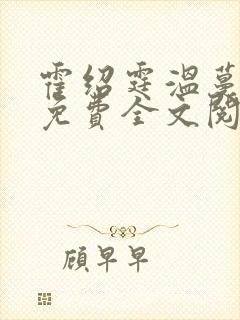 霍绍霆温蔓
免费全文阅
顾早早